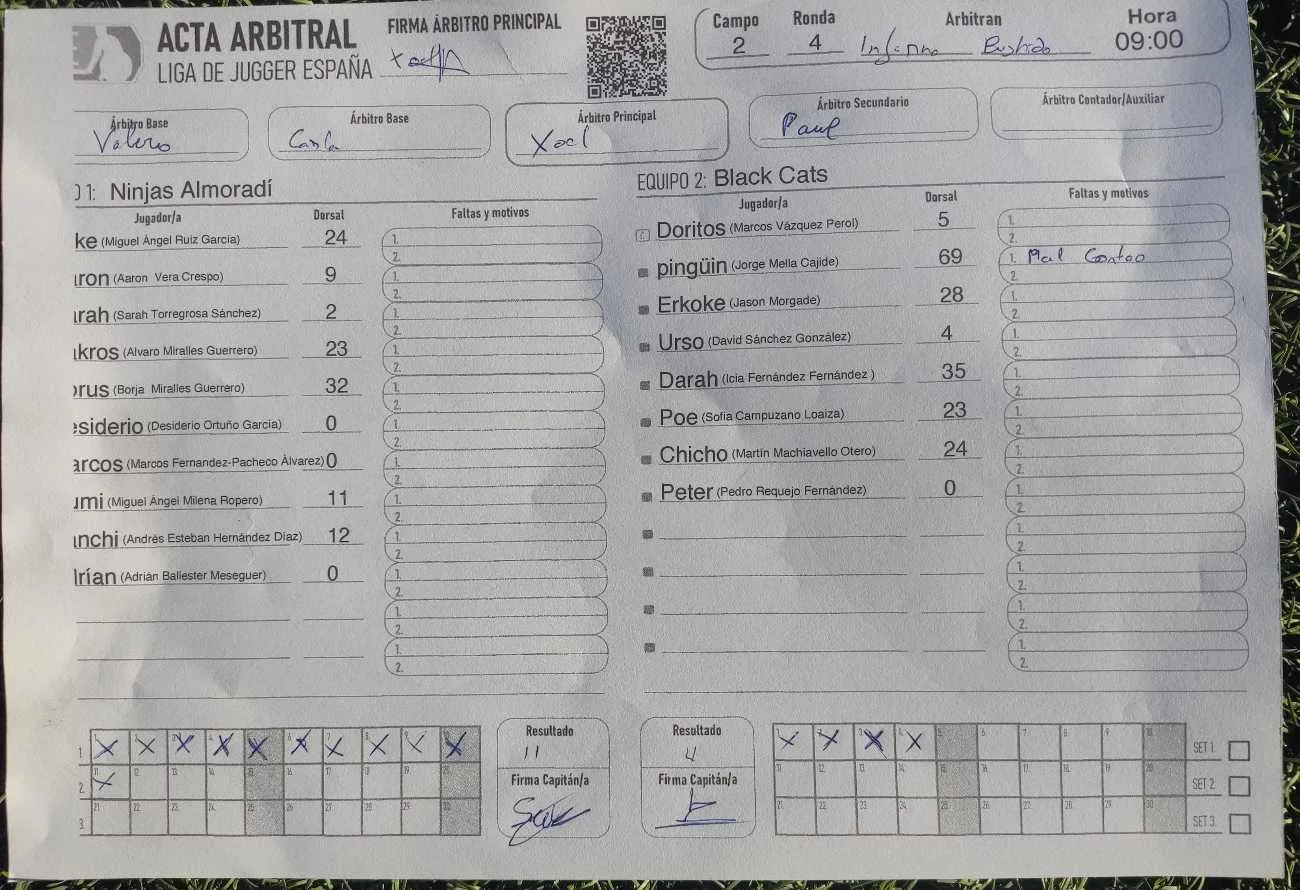 ACTA ARBITRAL
LIGA DE JUGGER ESPAÑA
FIRMA ÁRBITRO PRINCIPAL
Campo Ronda Arbitran Hora
2 4 Infernno 09:00
Árbitro Base Árbitro Base Árbitro Principal Árbitro Secundario Árbitro Contador/Auxiliar
Valerio Carla Xoel Paul
O 1: Ninjas Almoradí
Jugador/a Dorsal Faltas y motivos
ke (Miguel Ángel Ruiz García) 24 1. 2.
ron (Aaron Vera Crespo) 9 1. 2.
arah (Sarah Torregrosa Sánchez) 2 1. 2.
akros (Alvaro Miralles Guerrero) 23 1. 2.
orus (Borja Miralles Guerrero) 32 1. 2.
esiderio (Desiderio Ortuño García) 0 1. 2.
arcos (Marcos Fernandez-Pacheco Álvarez) 0 1. 2.
umi (Miguel Ángel Milena Ropero) 11 1. 2.
anchi (Andrés Esteban Hernández Díaz) 12 1. 2.
drían (Adrián Ballester Meseguer) 0 1. 2.
1. 2.
1. 2.
EQUIPO 2: Black Cats
Jugador/a Dorsal Faltas y motivos
Doritos (Marcos Vázquez Perol) 5 1. 2.
pingüin (Jorge Mella Cajide) 69 1. Mal Conteo 2.
Erkoke (Jason Morgade) 28 1. 2.
Urso (David Sánchez González) 4 1. 2.
Darah (Icia Fernández Fernández ) 35 1. 2.
Poe (Sofia Campuzano Loaiza) 23 1. 2.
Chicho (Martín Machiavello Otero) 24 1. 2.
Peter (Pedro Requejo Fernández) 0 1. 2.
1. 2.
1. 2.
1. 2.
1. 2.
Resultado
11
Firma Capitán/a
Resultado
4
Firma Capitán/a
1.
2. 11 12 13 14 15 16 17 18 19 20
3. 21 22 23 24 25 26 27 28 29 30
5 6 7 8 9 10 SET 1
11 12 13 14 15 16 17 18 19 20 SET 2
21 22 23 24 25 26 27 28 29 30 SET 3